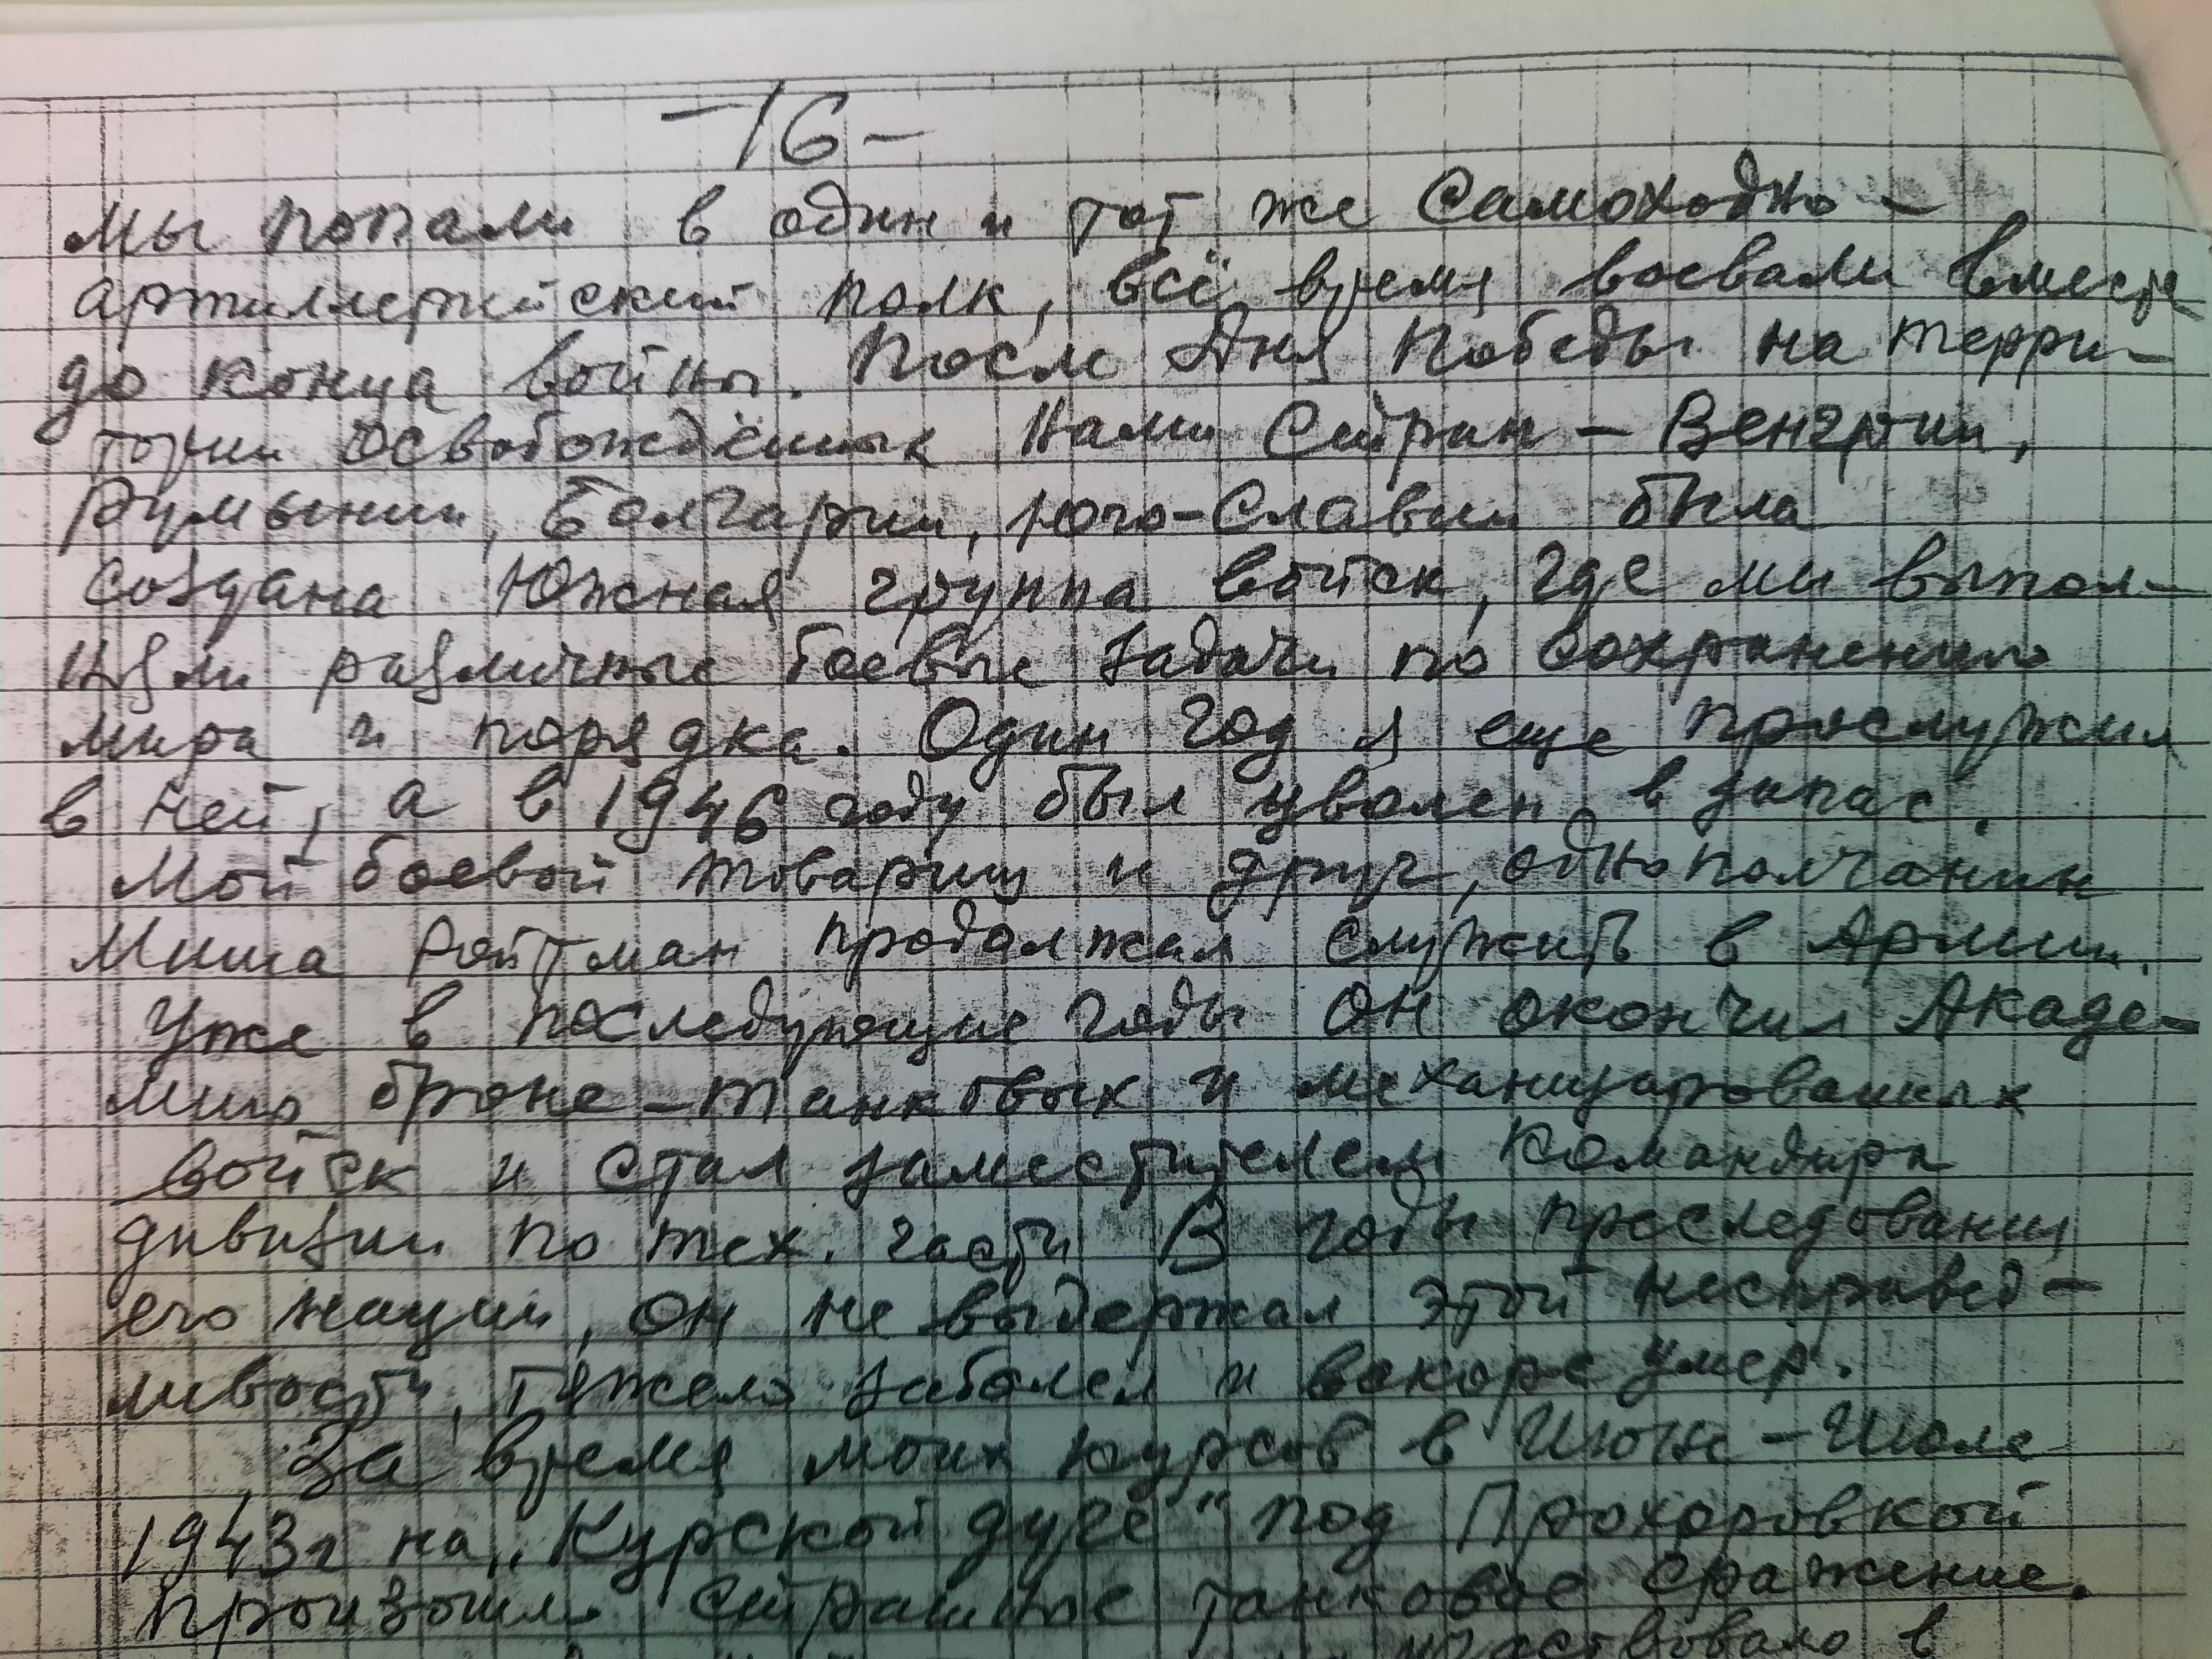 -16-
мы попали в один и тот же Самоходно-
артиллерийский полк, всё время воевали вместе
до конца войны. После Дня Победы на терри-
тории освобождённых нами Стран - Венгрии,
Румынии, Болгарии, Юго-Славии была
создана Южная группа войск, где мы выпол-
няли различные боевые задачи по сохранению
мира и порядка. Один год я еще прослужил
в ней, а в 1946 году был уволен в запас.
Мой боевой товарищ и друг, однополчанин
Миша Ройтман продолжал служить в Армии.
Уже в последующие годы он окончил Акаде-
мию броне-танковых и механизированных
войск и стал заместителем командира
дивизии по тех. части В годы преследования
его нации, он не выдержал этой несправед-
ливости, тяжело заболел и вскоре умер.
За время моих курсов в Июне-Июле
1943г на „Курской дуге" под Прохоровкой
произошло страшное танковое сражение.
участвовало в